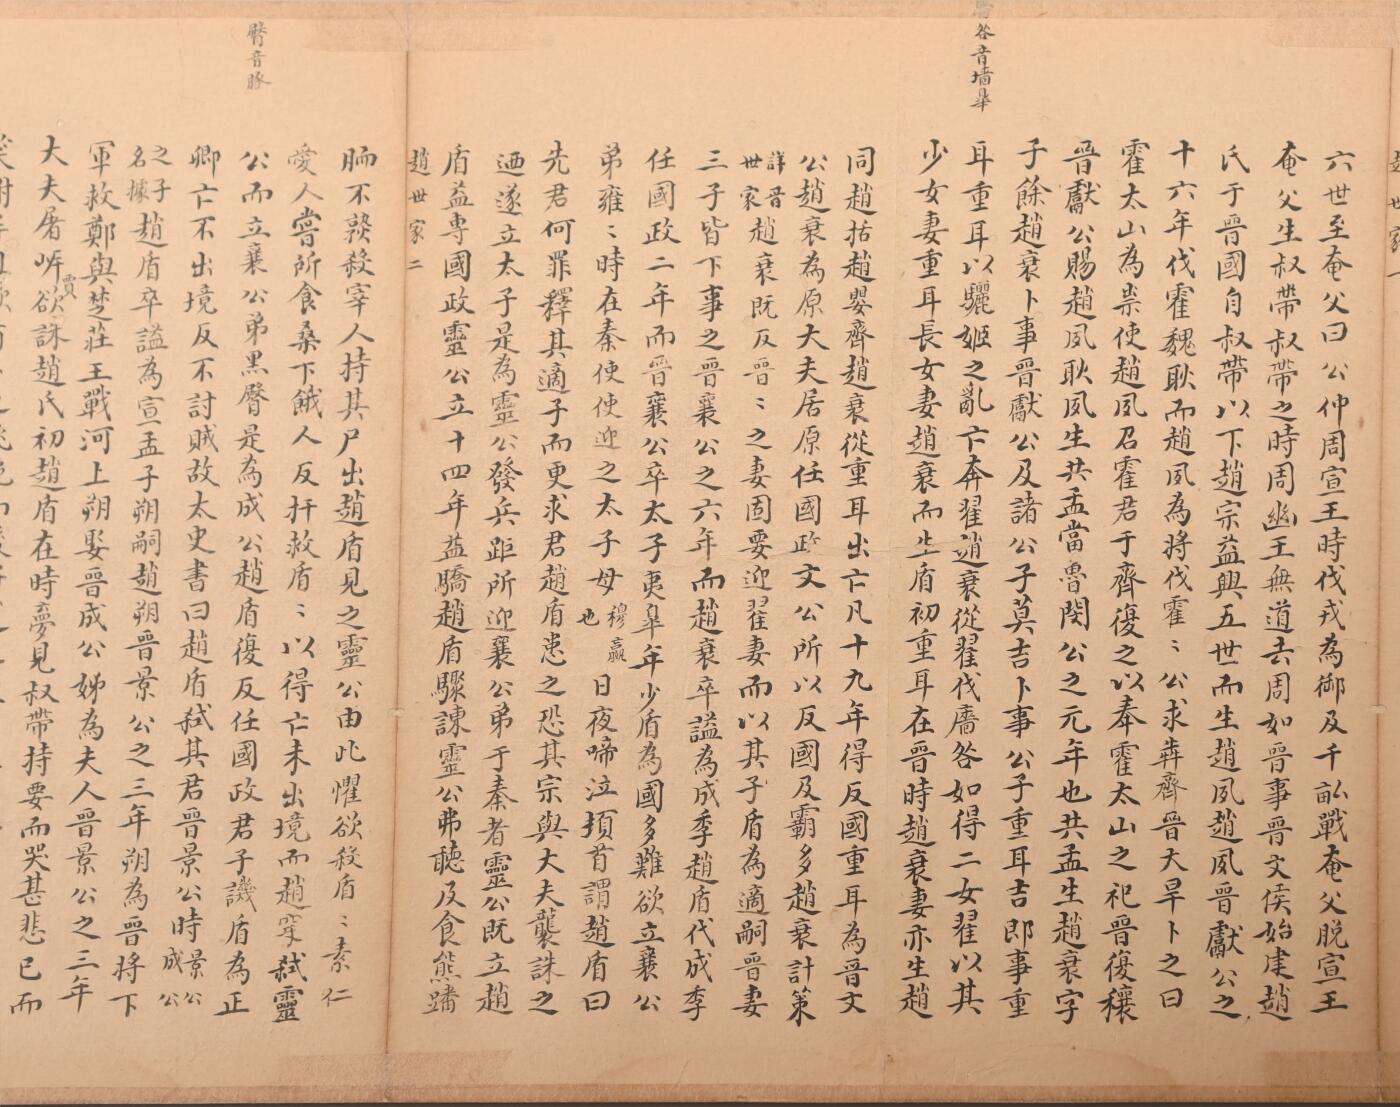 趙世家一
六世至奄父曰公仲周宣王時伐戎為御及千畝戰奄父脫宣王
奄父生叔帶叔帶之時周幽王無道去周如晉事晉文侯始建趙
氏于晉國自叔帶以下趙宗益興五世而生趙夙趙夙晉獻公之
十六年伐霍魏耿而趙夙為將伐霍〻公求犇齊晉大旱卜之曰
霍太山為祟使趙夙召霍君于齊復之以奉霍太山之祀晉復穰
晉獻公賜趙夙耿夙生共孟當魯閔公之元年也共孟生趙衰字
子餘趙衰卜事晉獻公及諸公子莫吉卜事公子重耳吉即事重
耳重耳以驪姬之亂亡奔翟趙衰從翟伐廧咎如得二女翟以其
咎音墻皋
少女妻重耳長女妻趙衰而生盾初重耳在晉時趙衰妻亦生趙
同趙括趙嬰齊趙衰從重耳出亡凡十九年得反國重耳為晉文
公趙衰為原大夫居原任國政文公所以反國及霸多趙衰計策
詳晉世家趙衰既反晉〻之妻固要迎翟妻而以其子盾為適嗣晉妻
三子皆下事之晉襄公之六年而趙衰卒謚為成季趙盾代成季
任國政二年而晉襄公卒太子夷皐年少盾為國多難欲立襄公
弟雍〻時在秦使使迎之太子母穆嬴也日夜啼泣頓首謂趙盾曰
先君何罪釋其適子而更求君趙盾患之恐其宗與大夫襲誅之
迺遂立太子是為靈公發兵距所迎襄公弟于秦者靈公既立趙
盾益專國政靈公立十四年益驕趙盾驟諫靈公弗聽及食熊蹯
趙世家二
胹不熟殺宰人持其尸出趙盾見之靈公由此懼欲殺盾〻素仁
愛人嘗所食桑下餓人反扞救盾〻以得亡未出境而趙穿弒靈
公而立襄公弟黑臀是為成公趙盾復反任國政君子譏盾為正
臀音豚
卿亡不出境反不討賊故太史書曰趙盾弒其君晉景公時景公成公
之子名據趙盾卒謚為宣孟子朔嗣趙朔晉景公之三年朔為晉將下
軍救鄭與楚莊王戰河上朔娶晉成公姊為夫人晉景公之三年
大夫屠岸賈欲誅趙氏初趙盾在時夢見叔帶持要而哭甚悲已而